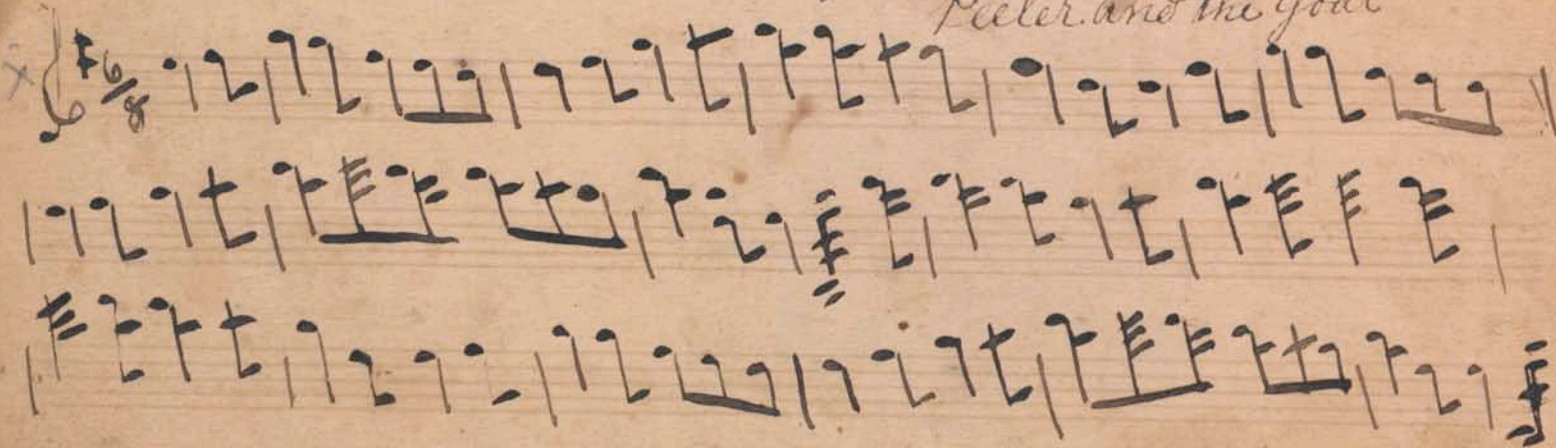 Peeler and the Goat
6/8